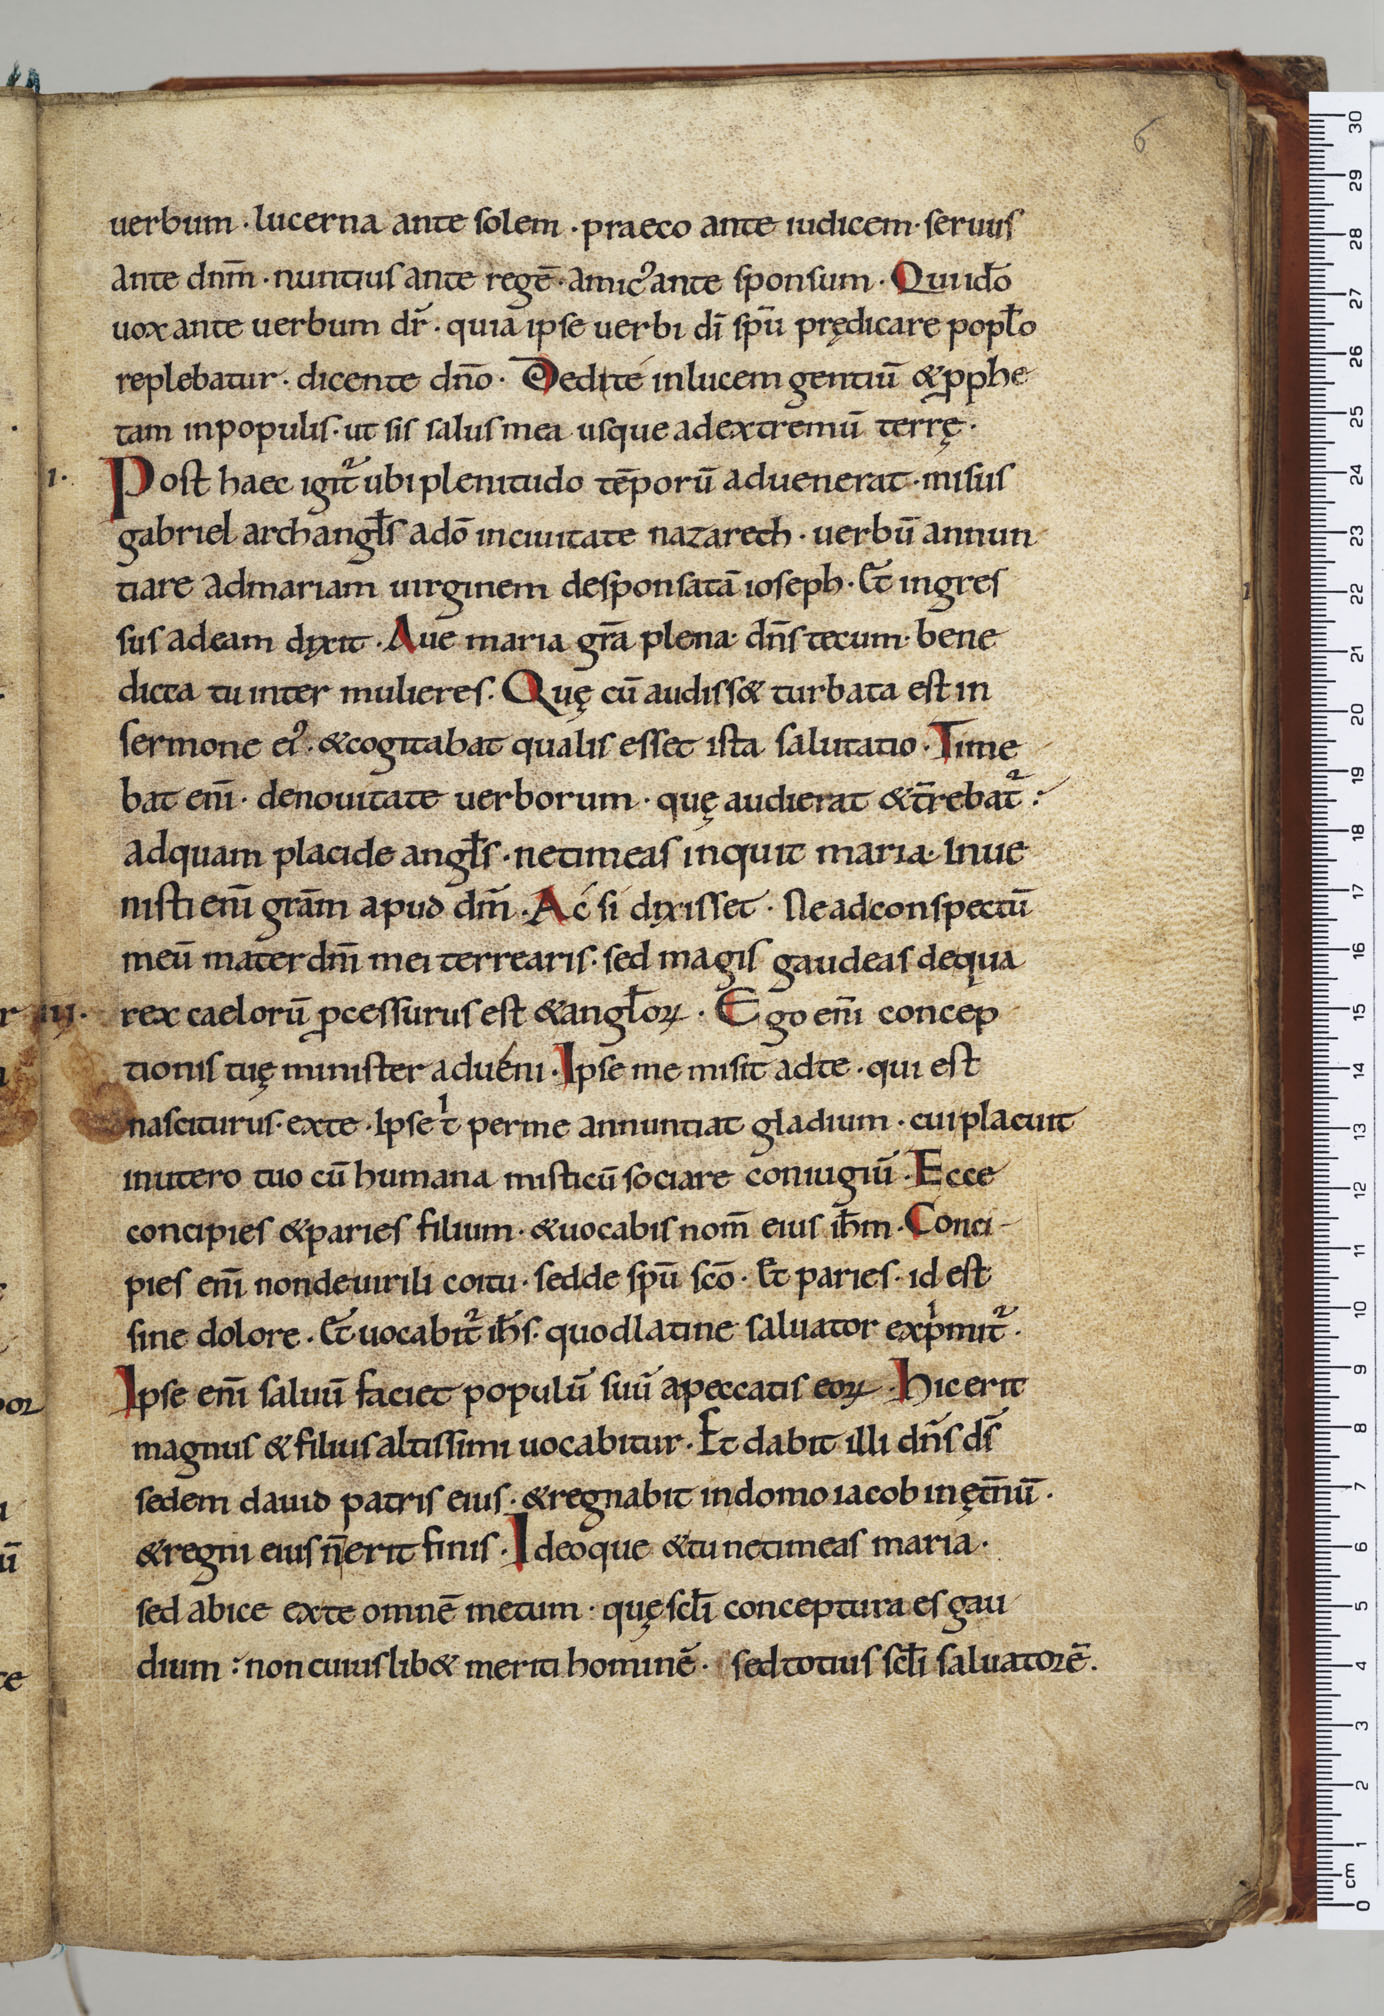 6
uerbum · lucerna ante solem · praeco ante iudicem · seruus
ante dnm̄ · nuntius ante regē · amicꝰ ante sponsum · Qui ido
uox ante uerbum dr̄ · quia ipse uerbi dī spū prędicare popło
replebatur · dicente dño · Dedi té in lucem gentiū & ꝓphe
tam in populis · ut sis salus mea usque ad extremū terrę ·
1.
Post haec igit᷑ ubi plenitudo tēporū aduenerat · misus
gabriel archangłs adō in ciuitate nazareth · uerbū annun
tiare ad mariam uirginem desponsatā ioseph · Et ingres
sus ad eam dixit · Aue maria gr̄a plena · dn̄s tecum · bene
dicta tu inter mulieres · Quę cū audiss& turbata est in
sermone eiꝰ · & cogitabat qualis esset ista salutatio · Time
bat eni̅ · de nouitate uerborum · quę audierat & tr̄rebat᷑ :
ad quam placide angłs · ne timeas inquit maria · Inue
nisti eni̅ grām apud dm̄ · Ac si dixisset · Ne ad conspectū
meū mater dnī mei terrearis · sed magis gaudeas de qua
III.
rex caelorū ꝓcessurus est & angłoꝝ · Ego eni̅ concep
tionis tuę minister aduéni · Ipse me misit ad te · qui est
nasciturus · ex te · Ipse t̍ per me annuntiat gladium · cui placuit
in utero tuo cū humana misticū sociare coniugiū · Ecce
concipies & paries filium · & uocabis nom̄ eius ihm̄ · Conci-
pies eni̅ non de uirili coitu · sed de spū scō · Et paries · id est
sine dolore · Et uocabit᷑ ihs̄ · quod latine saluator exp̍mit᷑ ·
Ipse eni̅ saluū faciet populū suū a peccatis eoꝝ · Hic erit
magnus & filius altissimi uocabitur · Et dabit illi dn̄s ds̄
sedem dauid patris eius · & regnabit in domo iacob in ętn̄ū ·
& regni eius n̄ erit finis · Ideoque & tu ne timeas maria ·
sed abice ex te omnē metum · quę scłi conceptura es gau
dium : non cuiuslib& meriti hominē · sed totius scłi saluatorē ·